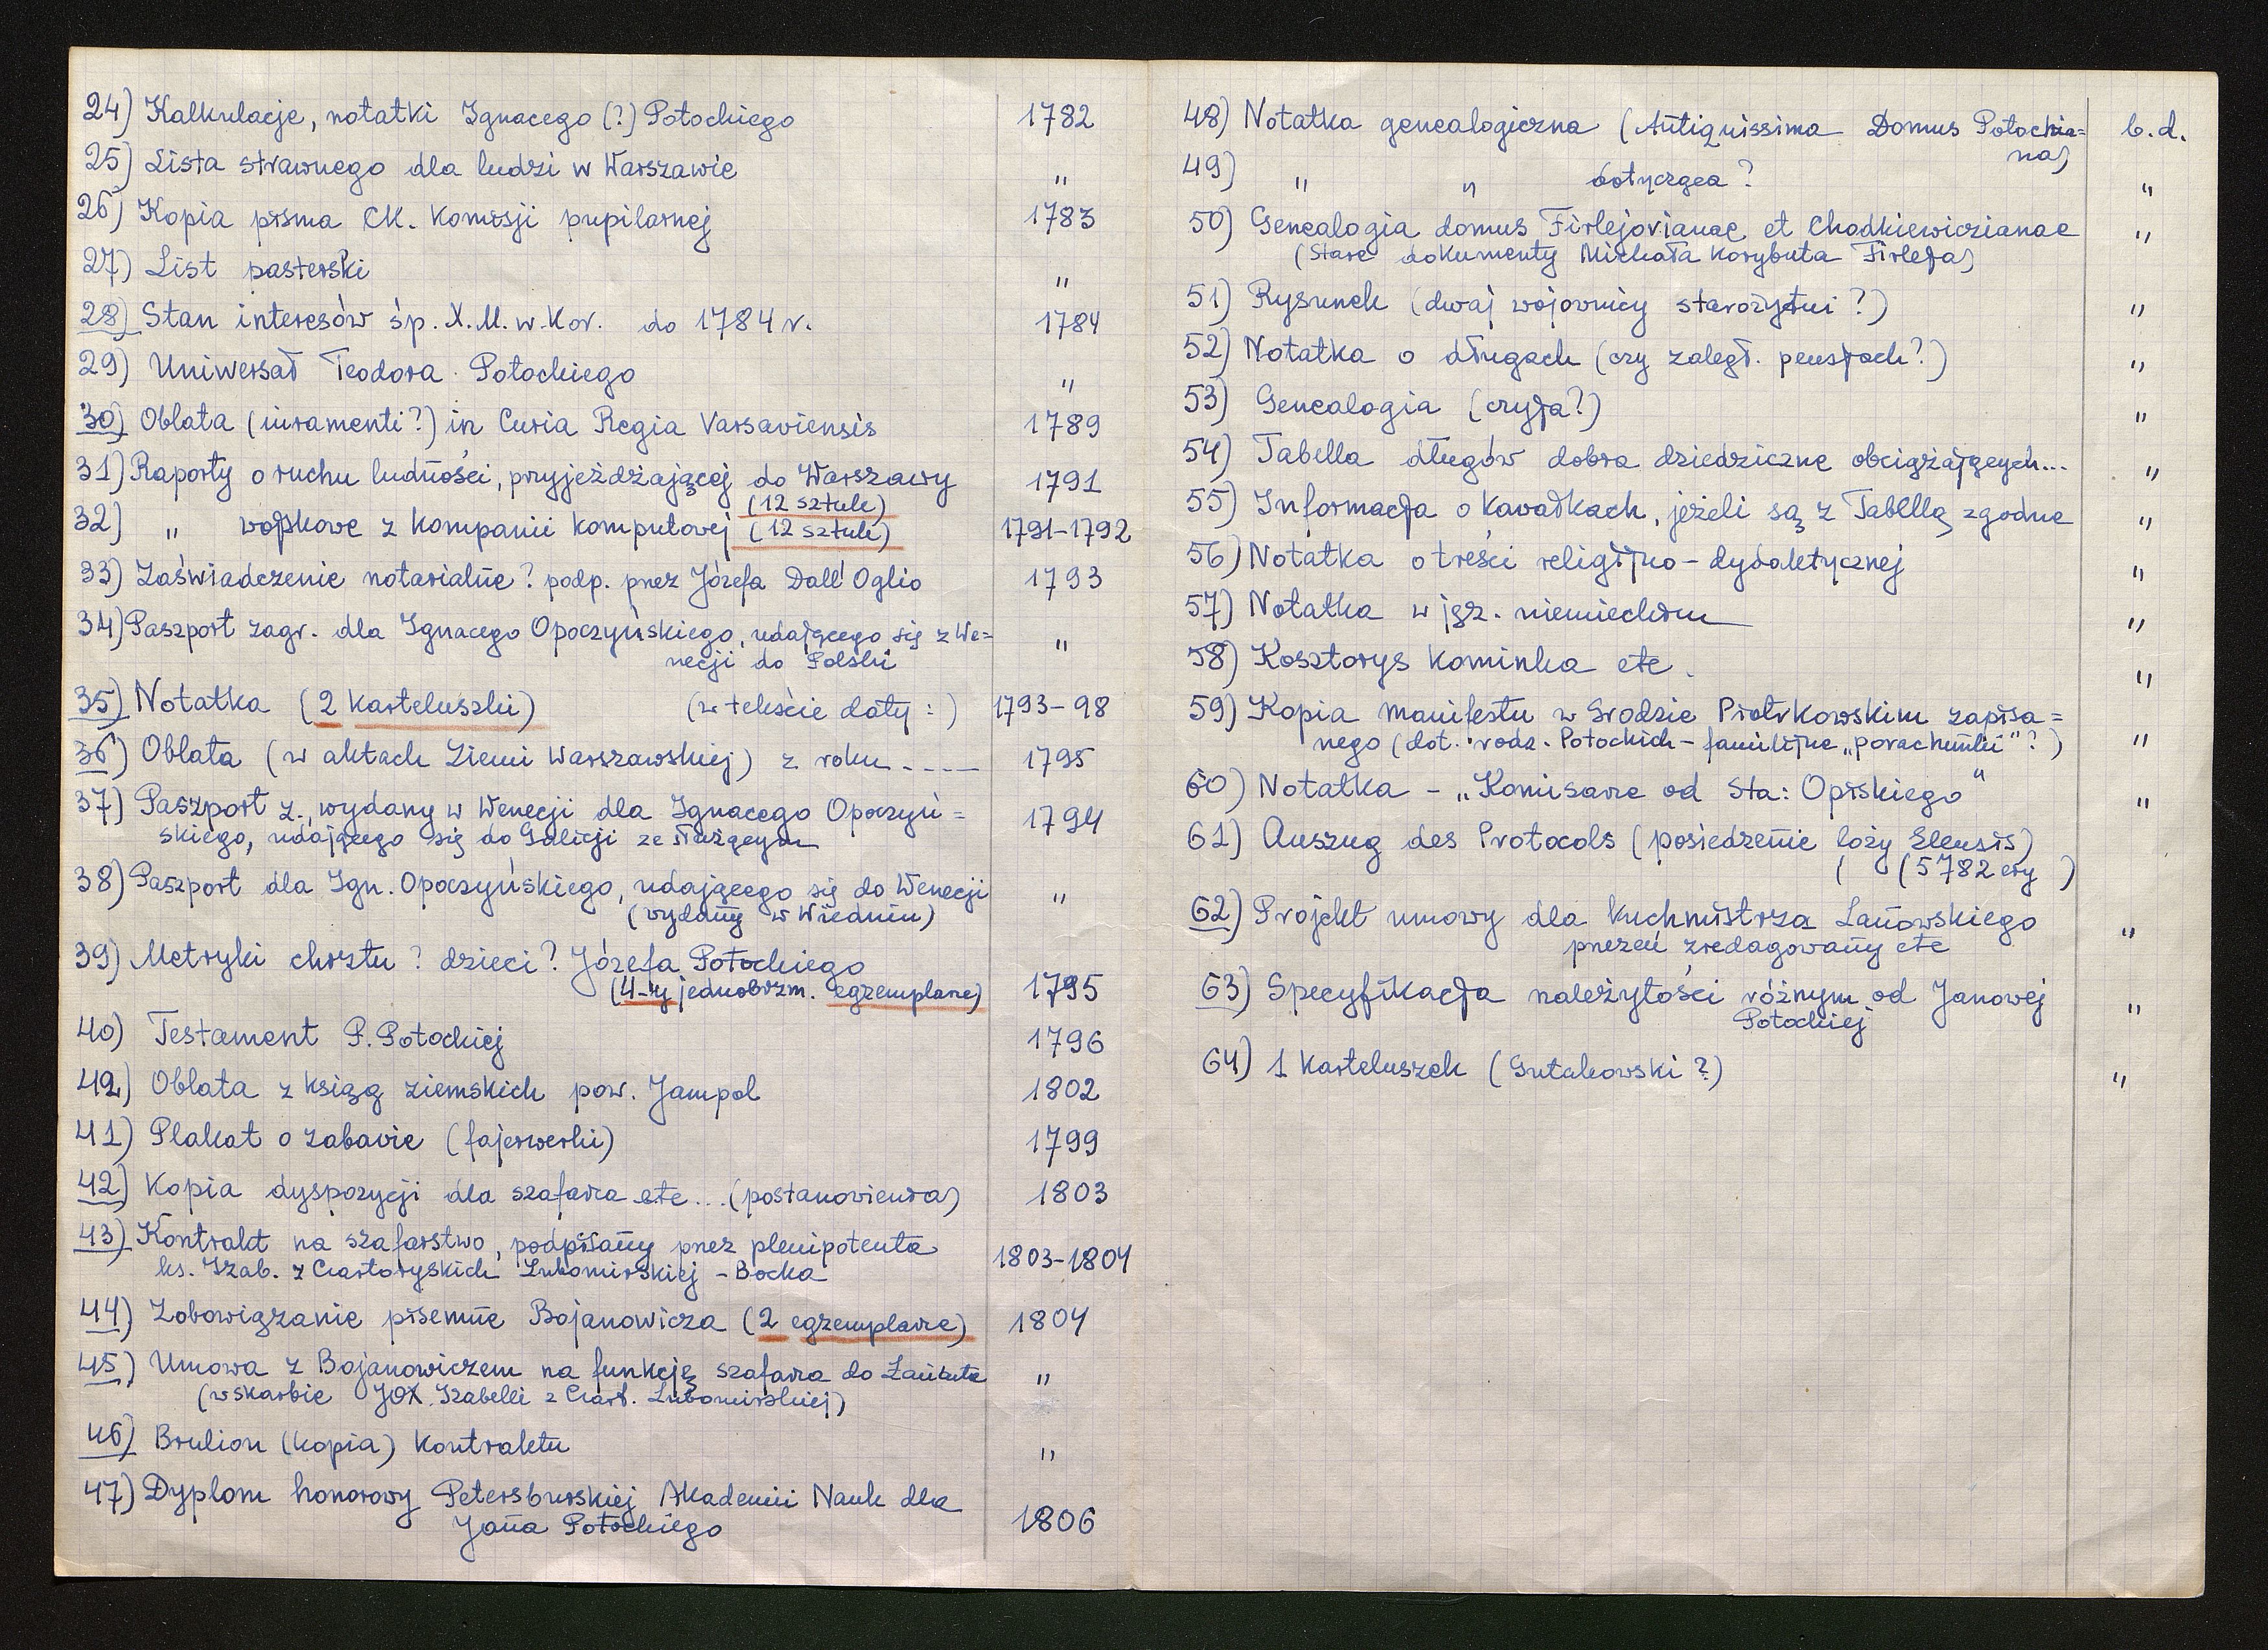 24) Kalkulacje, notatki Ignacego (?) Potockiego 1782
25) Lista strawnego dla ludzi w Warszawie "
26) Kopia pisma CK. Komisji pupilarnej 1783
27) List pasterski "
28) Stan interesów śp. X.M. w. Kor. do 1784 r. 1784
29) Uniwersał Teodora Potockiego "
30) Oblata (iuramenti?) in Curia Regia Varsaviensis 1789
31) Raporty o ruchu ludności, przyjeżdżającej do Warszawy 1791
(12 sztuk)
32) " wojskowe z kompanii komputowej (12 sztuk) 1791-1792
33) Zaświadczenie notarialne? podp. przez Józefa Dall' Oglio 1793
34) Paszport zagr. dla Ignacego Opoczyńskiego, udającego się z We= "
necji do Polski
35) Notatka (2 karteluszki) (w tekście daty:) 1793-98
36) Oblata (w aktach Ziemi Warszawskiej) z roku ---- 1795
37) Paszport z., wydany w Wenecji dla Ignacego Opoczyń= 1794
skiego, udającego się do Galicji ze służącym
38) Paszport dla Ign. Opoczyńskiego, udającego się do Wenecji "
(wydany w Wiedniu)
39) Metryki chrztu? dzieci? Józefa Potockiego
(4-ry jednobrzm. egzemplarze) 1795
40) Testament P. Potockiej 1796
42) Oblata z ksiąg ziemskich pow. Jampol 1802
41) Plakat o zabawie (fajerwerki) 1799
42) Kopia dyspozycji dla szafarza etc... (postanowienia) 1803
43) Kontrakt na szafarstwo, podpisany przez plenipotenta 1803-1804
ks. Izab. z Czartoryskich Lubomirskiej - Bocka
44) Zobowiązanie pisemne Bojanowicza (2 egzemplarze) 1804
45) Umowa z Bojanowiczem na funkcję szafarza do Łańcuta "
(w skarbie JOX. Izabelli z Czart. Lubomirskiej)
46) Brulion (kopia) kontraktu "
47) Dyplom honorowy Petersburskiej Akademii Nauk dla 1806
Jana Potockiego
48) Notatka genealogiczna (Antiquissima Domus Potockia= b.d.
na)
49) " " dotycząca? "
50) Genealogia domus Firlejovianae et Chodkiewiczianae "
(Stare dokumenty Michała Korybuta Firleja)
51) Rysunek (dwaj wojownicy starożytni?) "
52) Notatka o długach (czy zaległ. pensjach?) "
53) Genealogia (czyja?) "
54) Tabella długów dobra dziedziczne obciążających... "
55) Informacja o kawałkach, jeżeli są z Tabellą zgodne "
56) Notatka o treści religijno-dydaktycznej "
57) Notatka w jęz. niemieckim "
58) Kosztorys kominka etc. "
59) Kopia manifestu w Grodzie Piotrkowskim zapisa=
nego (dot. rodz. Potockich - familijne „porachunki"?) "
60) Notatka - „Komisarze od Sta: Opiskiego" "
61) Auszug des Protocols (posiedzenie loży Eleusis)
( (5782 ery )
62) Projekt umowy dla kuchmistrza Lanowskiego "
przezeń zredagowany etc
63) Specyfikacja należytości różnym od Janowej "
Potockiej
64) 1 karteluszek (Gutakowski?) "